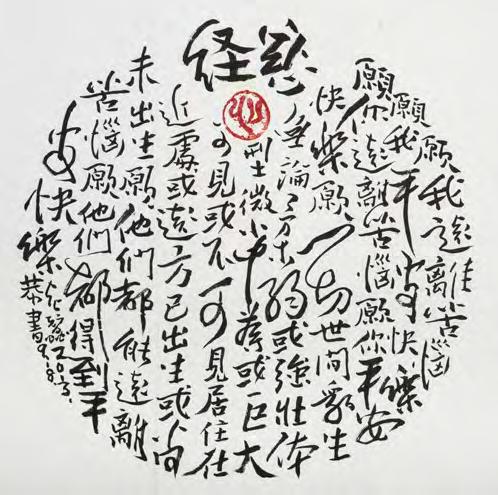 慈経
願我遠離苦惱
願我平安快樂
願你遠離苦惱願你平安
快樂願一切世間眾生
無論柔弱或強壯体
型微小中等或巨大
可見或不可見居住在
近處或遠方已出生或尚
未出生願他們都能遠離
苦惱願他們都得到平
安快樂
恭書